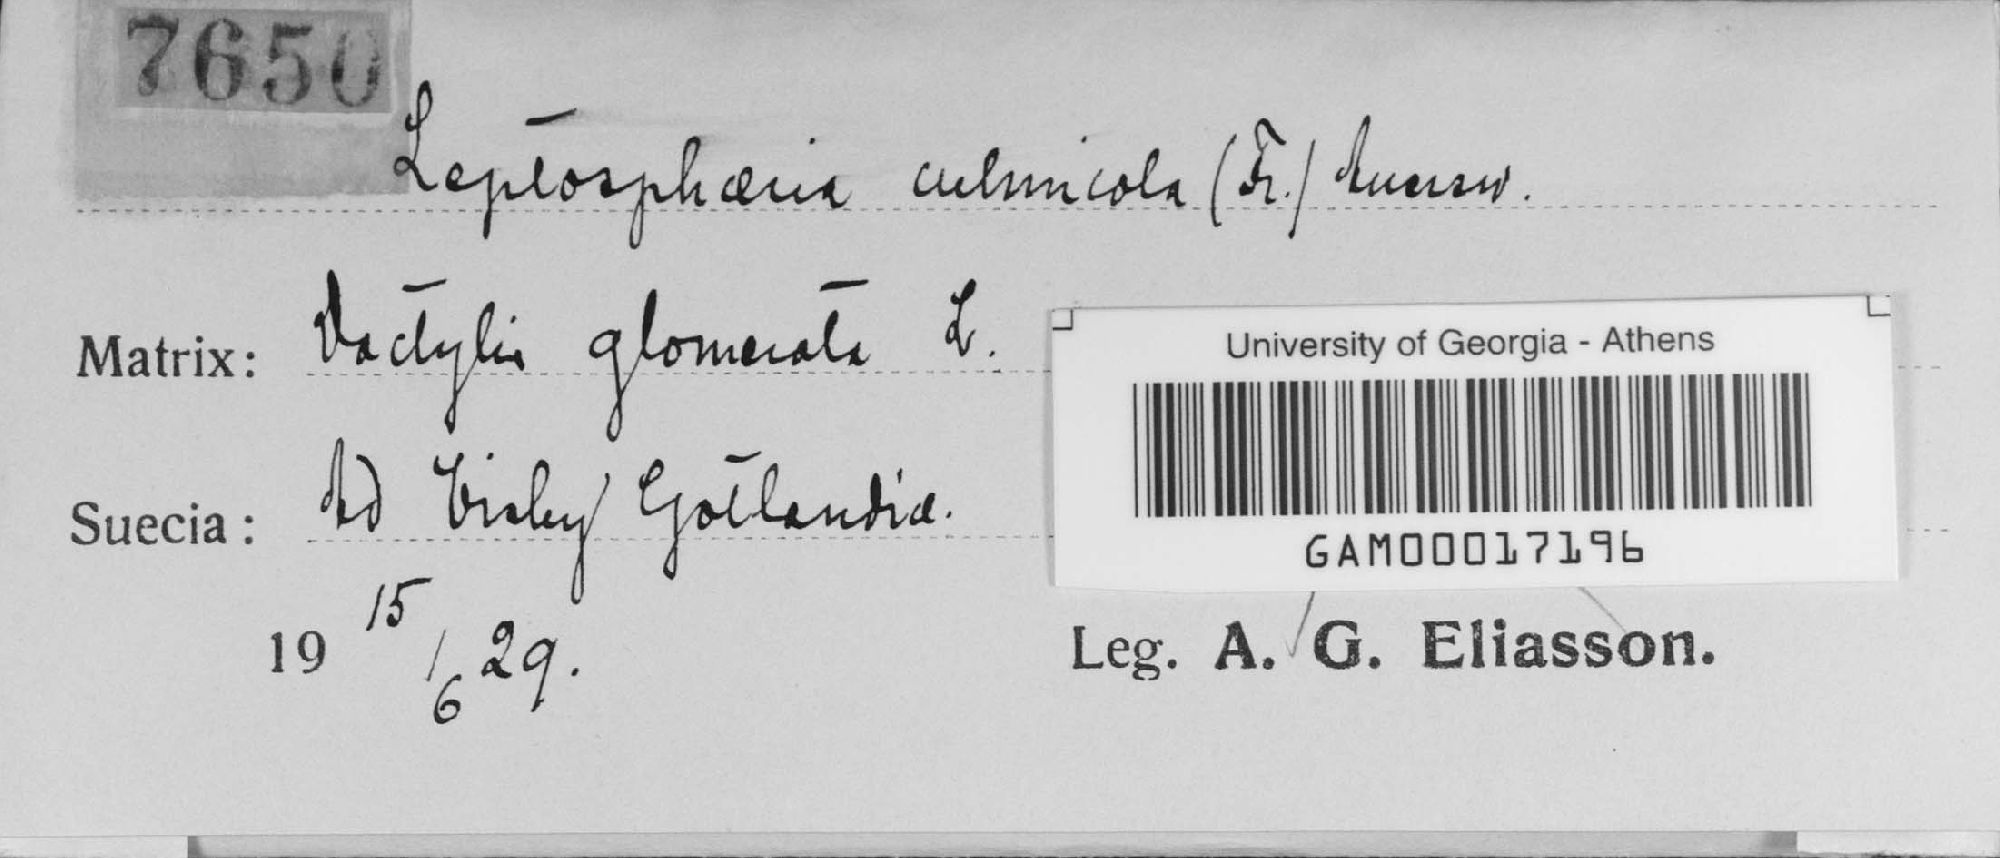 7650
Leptosphæria culmicola (Fr.) Auersw.
Matrix: Dactylis glomerata L.
University of Georgia - Athens
Suecia: Ad Visby Gotlandiæ.
GAM00017196
19 15/6 29.
Leg. A. G. Eliasson.